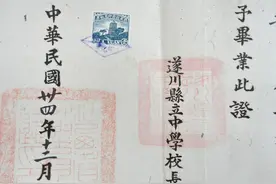 子畢業此證
遂川縣立中學校長
中華民國廿四年十二月